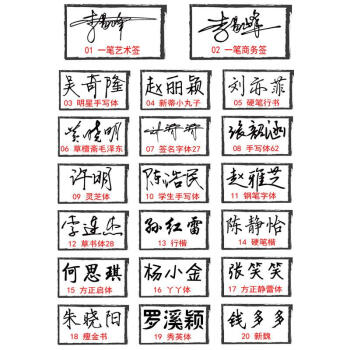 李易峰
01 一笔艺术签
李易峰
02 一笔商务签
吴奇隆
03 明星手写体
赵丽颖
04 新蒂小丸子
刘亦菲
05 硬笔行书
黄晓明
06 草檀斋毛泽东
07 签名字体27
张韶涵
08 手写体62
许明
09 灵芝体
陈浩民
10 学生手写体
赵雅芝
11 钢笔字体
李连杰
12 草书体28
孙红雷
13 行楷
陈静怡
14 硬笔楷
何思琪
15 方正启体
杨小金
16 丫丫体
张笑笑
17 方正静蕾体
朱晓阳
18 瘦金书
罗溪颖
19 秀英体
钱多多
20 新魏